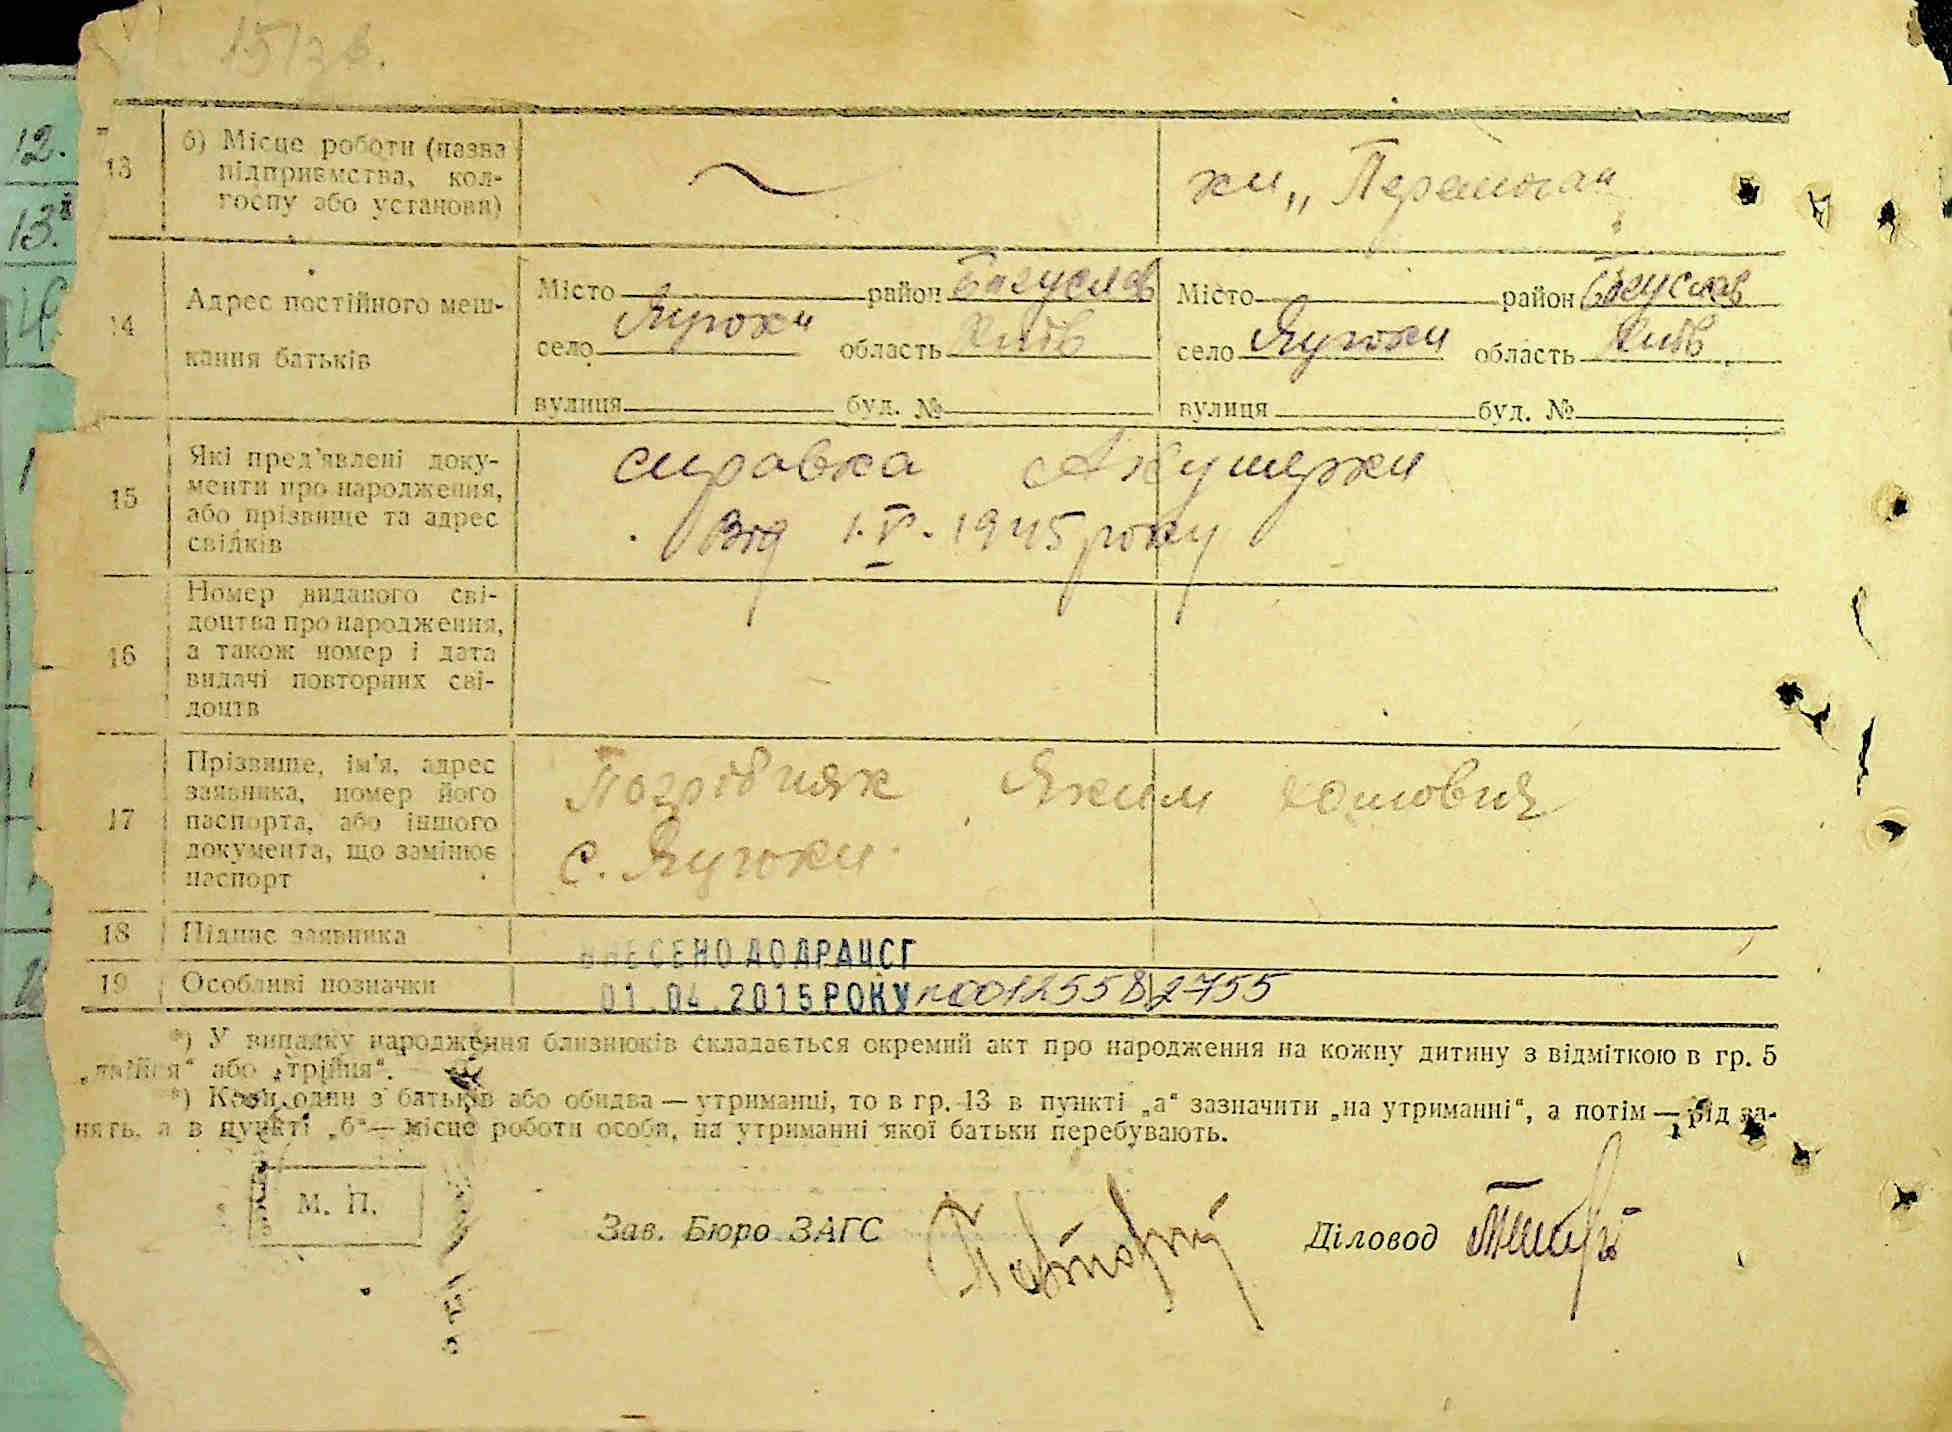 151зв.
12.
13.
13
б) Місце роботи (назва
підприємства, кол-
госпу або установи)
кп „Перемога"
14
Адрес постійного меш-
кання батьків
Місто район Богуслав
село Яцюки область Київ
вулиця буд. №
Місто район Богуслав
село Яцюки область Київ
вулиця буд. №
15
Які пред'явлені доку-
менти про народження,
або прізвище та адрес
свідків
справка Акушерки
Від 1.V.1945 року
16
Номер виданого сві-
доцтва про народження,
а також номер і дата
видачі повторних сві-
доцтв
17
Прізвище, ім'я, адрес
заявника, номер його
паспорта, або іншого
документа, що замінює
паспорт
Погрібняк Яким
с. Яцюки
18
Підпис заявника
ВНЕСЕНО ДО ДРАЦСГ
19
Особливі позначки
01.04.2015 РОКУ №00125582755
*) У випадку народження близнюків складається окремий акт про народження на кожну дитину з відміткою в гр. 5
„двійня" або „трійня".
*) Коли один з батьків або обидва — утриманці, то в гр. 13 в пункті „а" зазначити „на утриманні", а потім — рід за-
нять, а в пункті „б" — місце роботи особи, на утриманні якої батьки перебувають.
М. П.
Зав. Бюро ЗАГС
Діловод